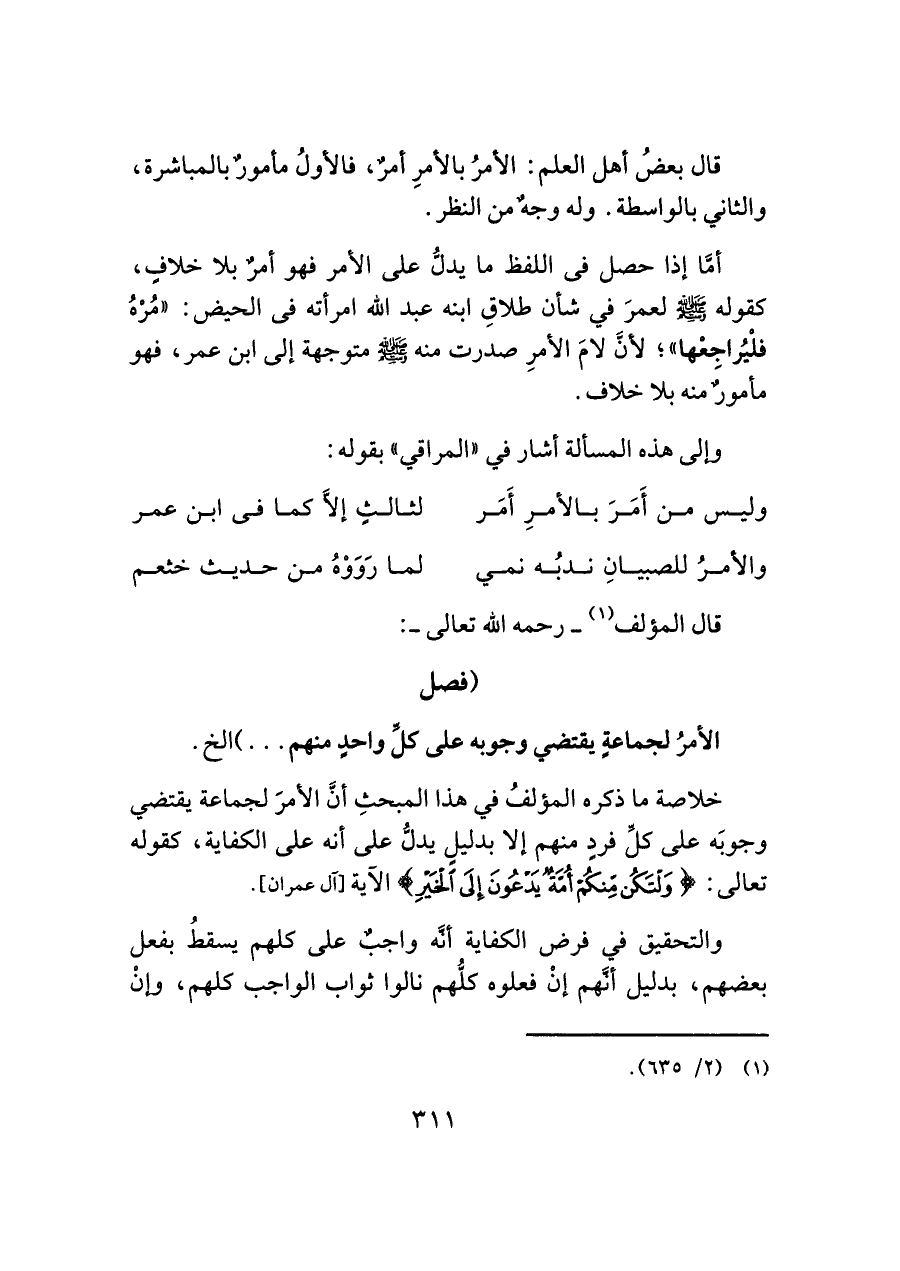 قال بعضُ أهل العلم: الأمرُ بالأمرِ أمرٌ، فالأولُ مأمورٌ بالمباشرة،
والثاني بالواسطة. وله وجهٌ من النظر.
أمَّا إذا حصل فى اللفظ ما يدلُّ على الأمر فهو أمرٌ بلا خلافٍ،
كقوله ﷺ لعمرَ في شأن طلاقِ ابنه عبد الله امرأته فى الحيض: «مُرْهُ
فلْيُراجِعْها»؛ لأنَّ لامَ الأمرِ صدرت منه ﷺ متوجهة إلى ابن عمر، فهو
مأمورٌ منه بلا خلاف.
وإلى هذه المسألة أشار في «المراقي» بقوله:
وليس من أَمَرَ بالأمرِ أَمَر لثالثٍ إلاَّ كما فى ابن عمر
والأمرُ للصبيانِ ندبُه نمي لما رَوَوْهُ من حديث خثعم
قال المؤلف(١) ـ رحمه الله تعالى ـ:
(فصل
الأمرُ لجماعةٍ يقتضي وجوبه على كلِّ واحدٍ منهم...)الخ.
خلاصة ما ذكره المؤلفُ في هذا المبحثِ أنَّ الأمرَ لجماعة يقتضي
وجوبَه على كلِّ فردٍ منهم إلا بدليلٍ يدلُّ على أنه على الكفاية، كقوله
تعالى: ﴿وَلْتَكُن مِّنكُمْ أُمَّةٌ يَدْعُونَ إِلَى ٱلْخَيْرِ﴾ الآية [آل عمران].
والتحقيق في فرض الكفاية أنَّه واجبٌ على كلهم يسقطُ بفعل
بعضهم، بدليل أنَّهم إنْ فعلوه كلُّهم نالوا ثواب الواجب كلهم، وإنْ
(١) (٢/ ٦٣٥).
٣١١